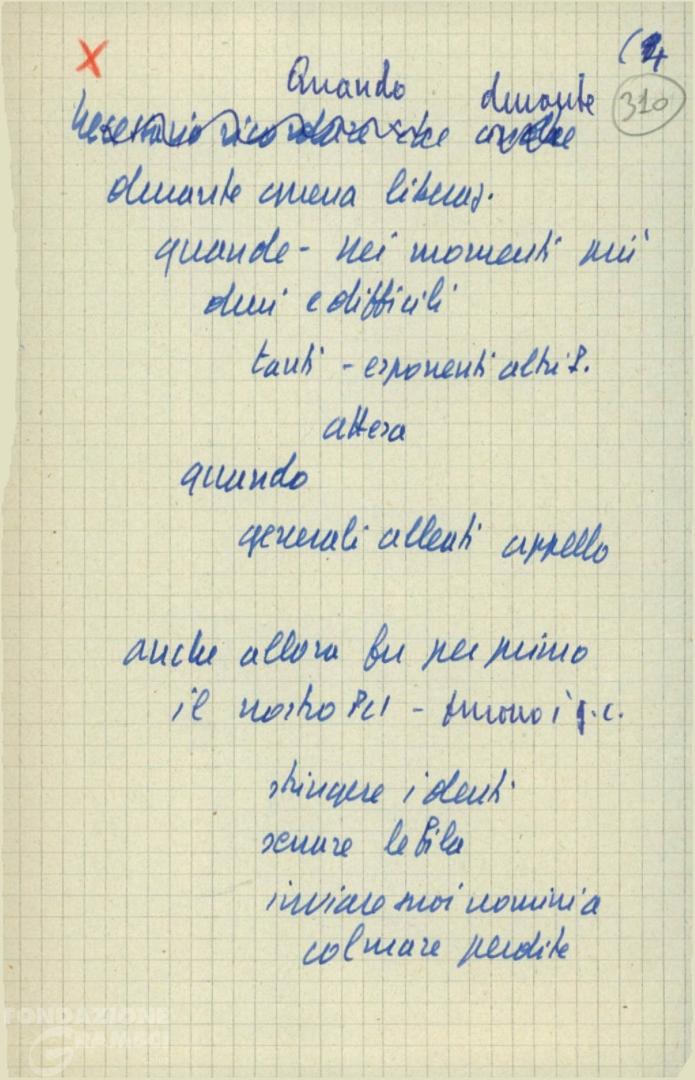 X
(4
310
Quando durante
Necessario ricordare che anche
durante guerra liberaz.
quando - nei momenti più
duri e difficili
tanti - esponenti altri P.
attesa
quando
generali alleati appello
anche allora fu per primo
il nostro PCI - furono i g.c.
stringere i denti
serrare le fila
inviare suoi uomini a
colmare perdite
FONDAZIONE
GRAMSCI